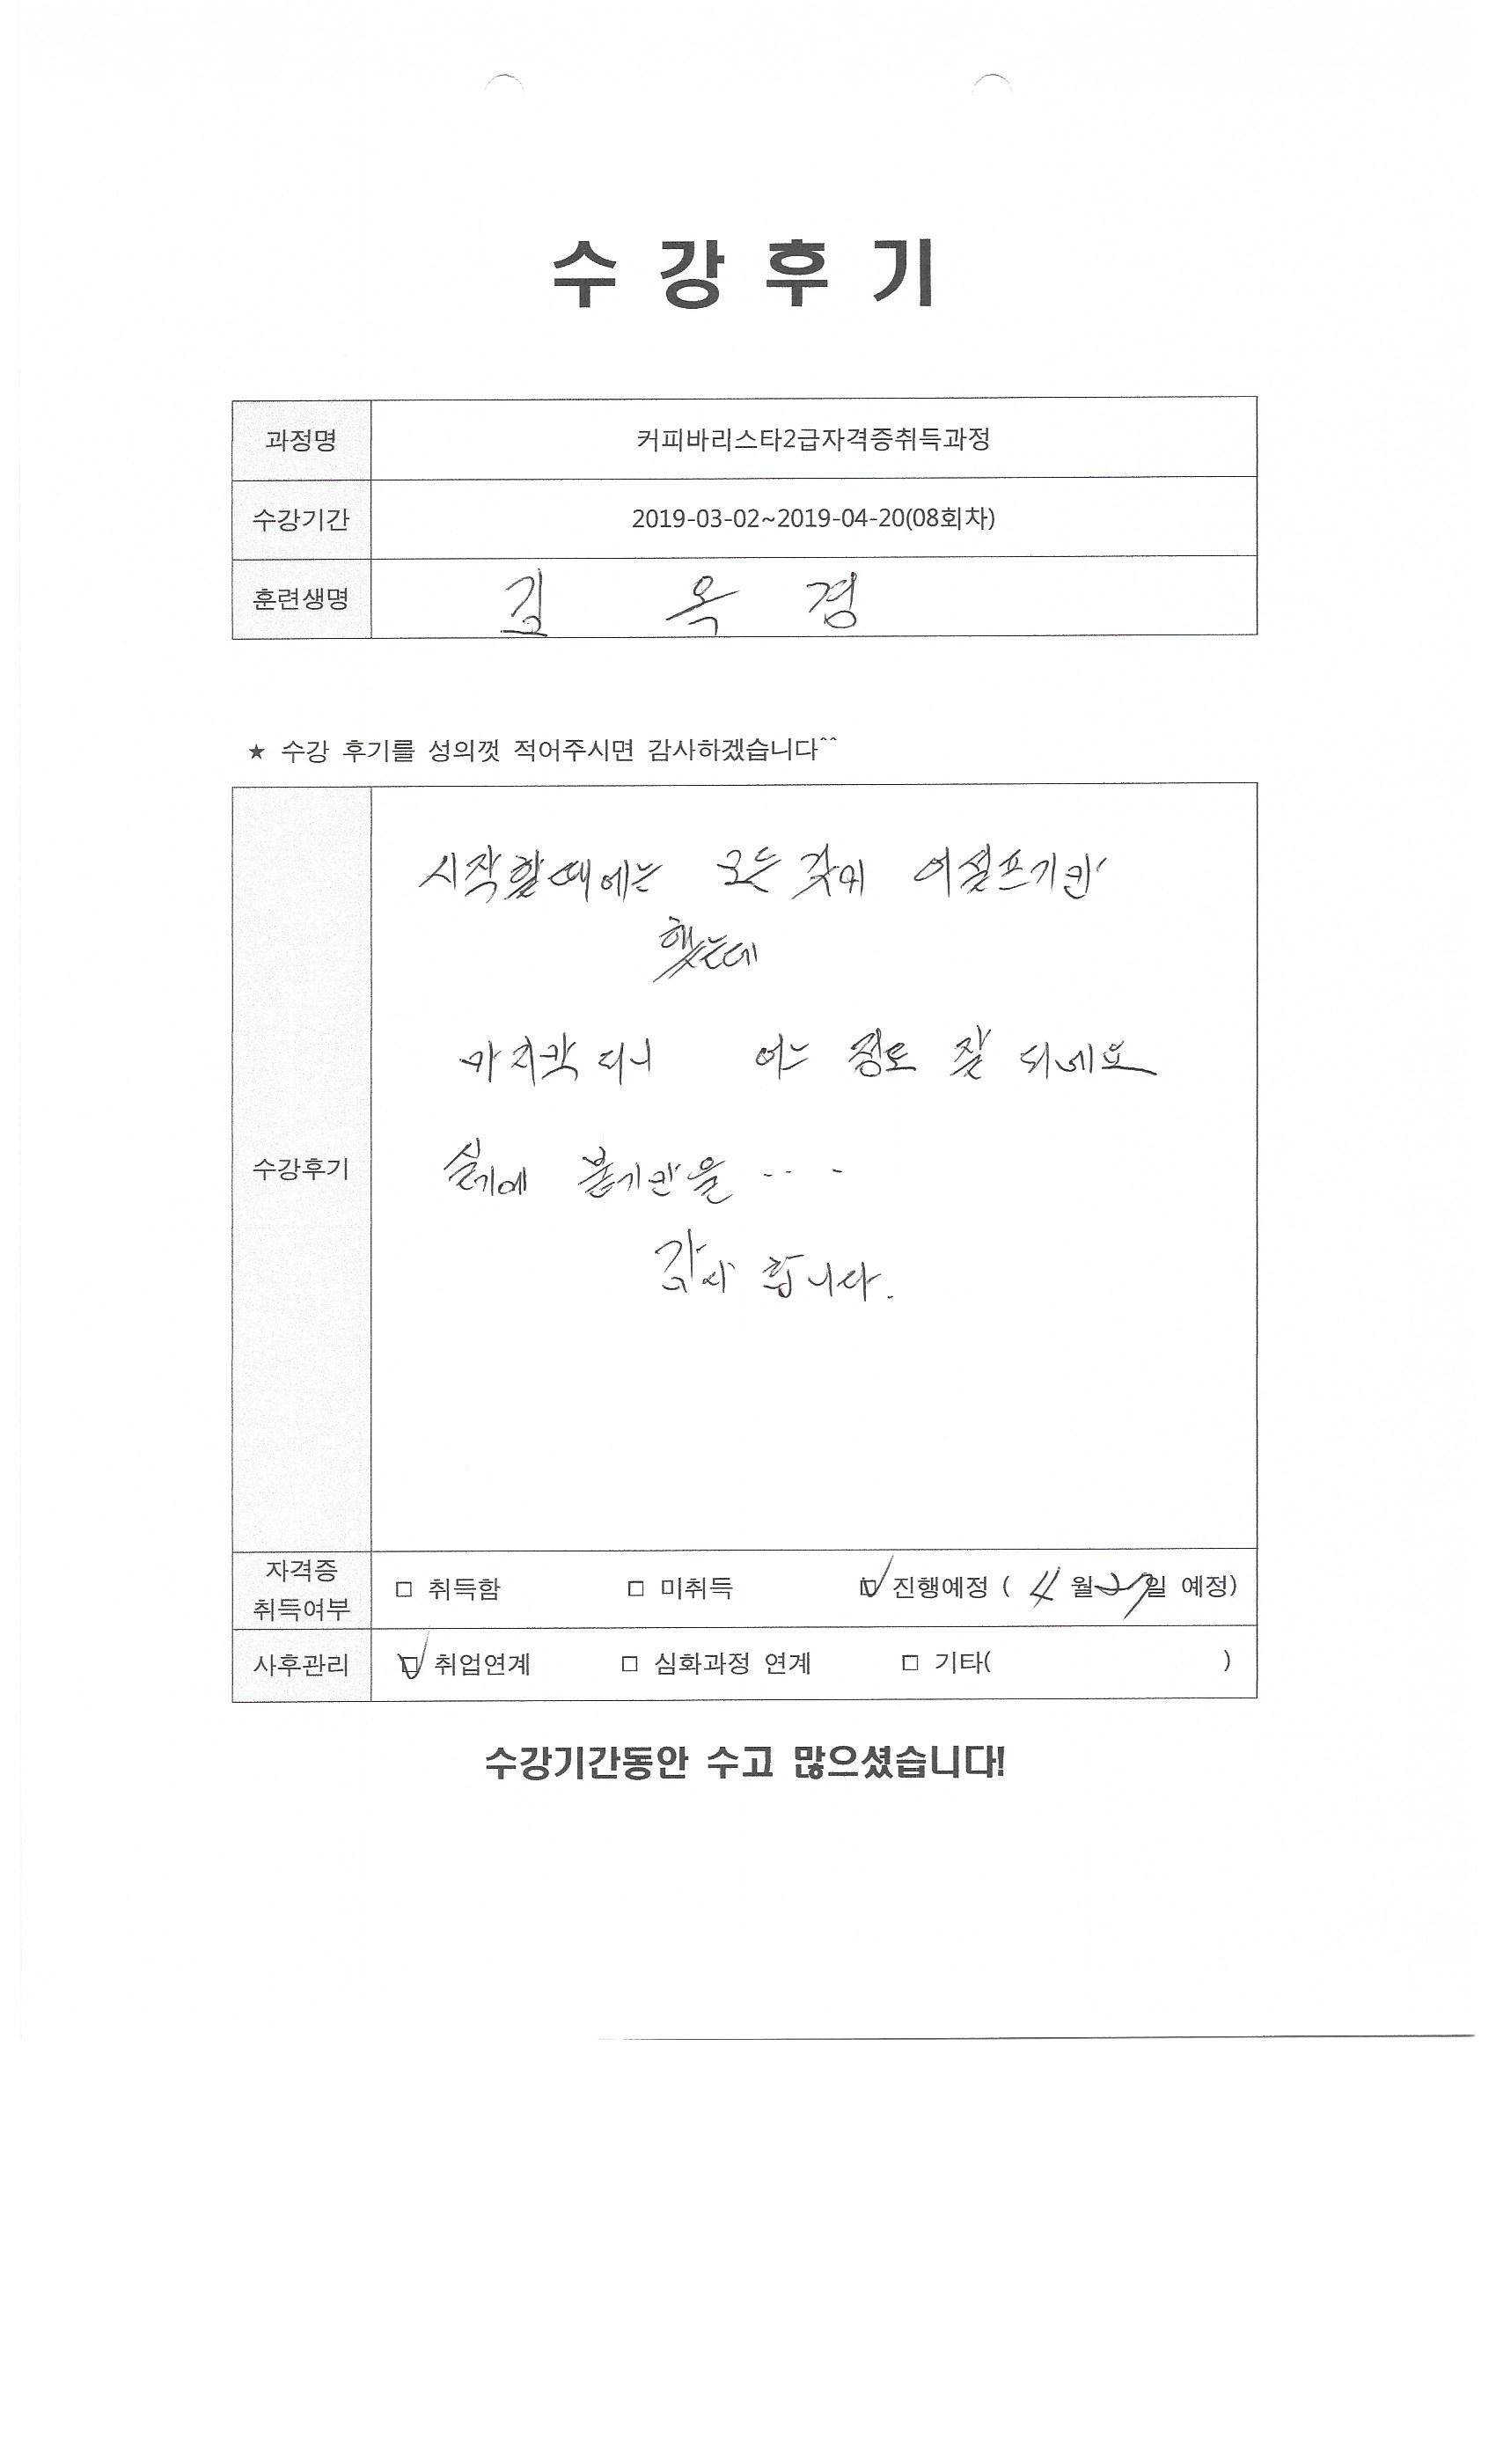 수 강 후 기
과정명 커피바리스타2급자격증취득과정
수강기간 2019-03-02~2019-04-20(08회차)
훈련생명 김 옥 경
★ 수강 후기를 성의껏 적어주시면 감사하겠습니다^^
수강후기
시작할때에는 모든 것이 어설프기만
했는데
마지막 되니 어느 정도 잘 되네요
실기에 붙기만을 - - -
감사 합니다.
자격증
취득여부
□ 취득함 □ 미취득 ☑ 진행예정 ( 4 월 27일 예정)
사후관리 ☑ 취업연계 □ 심화과정 연계 □ 기타( )
수강기간동안 수고 많으셨습니다!